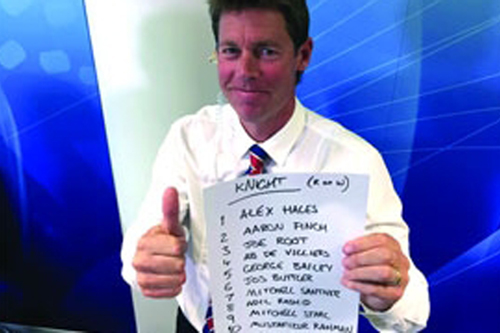 KNIGHT (R OF W)
1 ALEX HALES
2 AARON FINCH
3 JOE ROOT
4 AB DE VILLIERS
5 GEORGE BAILEY
6 JOS BUTTLER
7 MITCHELL SANTNER
8 ADIL RASHID
9 MITCHELL STARC
10 MUSTAFIZUR RAHMAN